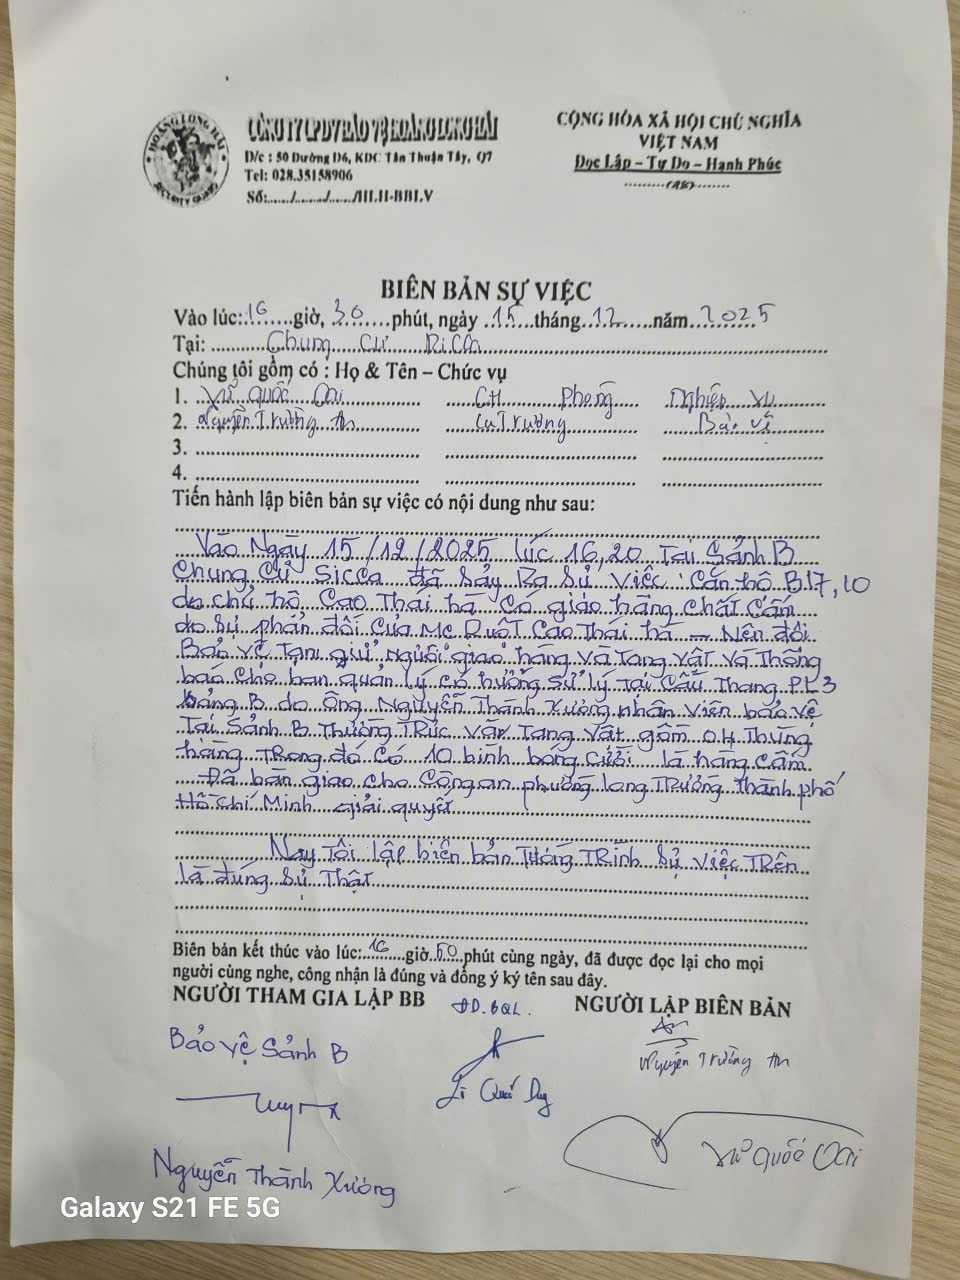 HOÀNG LONG HẢI
SECURITY GUARD
CÔNG TY CP DV BẢO VỆ HOÀNG LONG HẢI
Đ/c : 50 Đường D6, KDC Tân Thuận Tây, Q7
Tel: 028.35158906
Số:....../......./....../HLH-BBLV
CỘNG HÒA XÃ HỘI CHỦ NGHĨA
VIỆT NAM
Độc Lập – Tự Do – Hạnh Phúc
BIÊN BẢN SỰ VIỆC
Vào lúc: 16 giờ, 30 phút, ngày 15 tháng 12 năm 2025
Tại: Chung cư Ricca
Chúng tôi gồm có : Họ & Tên – Chức vụ
1. Quốc Oai CH Phòng Nghiệp vụ
2. Nguyễn Trường An Ca Trưởng Bảo vệ
3.
4.
Tiến hành lập biên bản sự việc có nội dung như sau:
Vào Ngày 15/12/2025 lúc 16,20 Tại Sảnh B
Chung Cư Sicca đã sảy Ra Sự Việc : Căn hộ B17,10
do chủ hộ Cao Thái hà có giao hàng chất Cấm
do sự phản đối của Mẹ Ruột Cao Thái hà – Nên đội
Bảo vệ Tạm giữ người giao hàng và Tang vật và Thông
báo cho ban quản lý có hướng sử lý Tại Cầu Thang PL3
Sảng B do Ông Nguyễn Thành Xương nhân Viên bảo vệ
Tại Sảnh B Thường Trực Tang Vật gồm 04 Thùng
hàng Trong đó có 10 bình bóng Cười là hàng Cấm
Đã bàn giao cho Công an phường long Trường Thành phố
Hồ Chí Minh giải quyết
Nay Tôi lập biên bản Tường Trình Sự việc Trên
là đúng sự Thật
Biên bản kết thúc vào lúc: 16 giờ 50 phút cùng ngày, đã được đọc lại cho mọi
người cùng nghe, công nhận là đúng và đồng ý ký tên sau đây.
NGƯỜI THAM GIA LẬP BB ĐD.BQL. NGƯỜI LẬP BIÊN BẢN
Bảo vệ Sảnh B
Nguyễn Trường An
Quốc Oai
Nguyễn Thành Xương
Galaxy S21 FE 5G